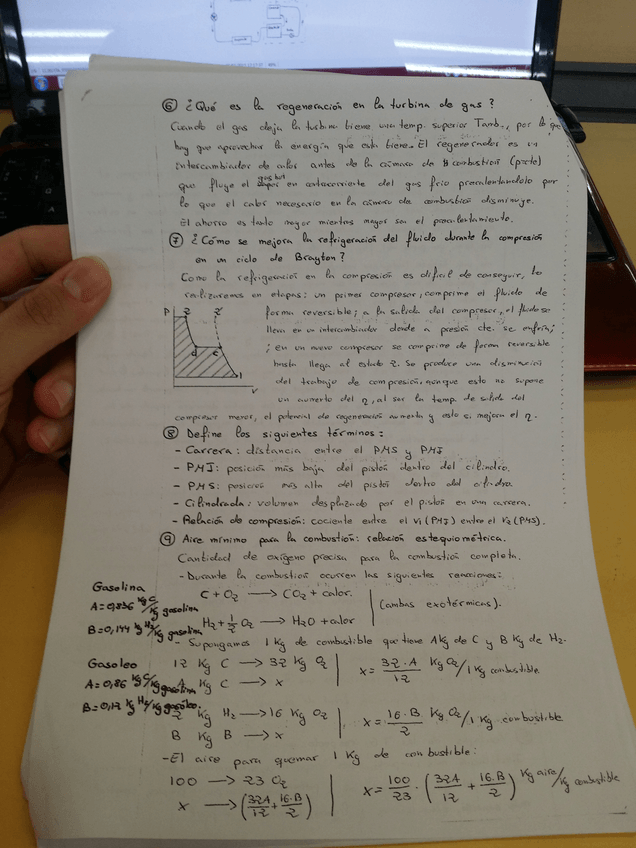 ⑥ ¿Qué es la regeneración en la turbina de gas?
Cuando el gas deja la turbina tiene una temp. superior Tamb., por lo que
hay que aprovechar la energía que esta tiene. El regenerador es un
intercambiador de calor antes de la cámara de combustión (parte)
que fluye el gas en contracorriente del gas frío precalentandolo por
lo que el calor necesario en la cámara de combustión disminuye.
El ahorro es tanto mayor mientras mayor sea el precalentamiento.
⑦ ¿Cómo se mejora la refrigeración del fluido durante la compresión
en un ciclo de Brayton?
Como la refrigeración en la compresión es difícil de conseguir, lo
realizaremos en etapas: un primer compresor, comprime el fluido de
P 2 2'
forma reversible; a la salida del compresor, el fluido se
lleva en un intercambiador donde a presión cte. se enfría;
d c
; en un nuevo compresor se comprime de forma reversible
hasta llega al estado 2. Se produce una disminución
1
del trabajo de compresión, aunque esto no supone
V
un aumento del η, al ser la temp. de salida del
compresor menor, el potencial de regeneración aumenta y esto si mejora el η.
⑧ Define los siguientes términos:
- Carrera: distancia entre el PMS y PMI
- PMI: posición más baja del pistón dentro del cilindro.
- PMS: posición más alta del pistón dentro del cilindro.
- Cilindrada: volumen desplazado por el pistón en una carrera.
- Relación de compresión: cociente entre el V1 (PMI) entre el V2 (PMS).
⑨ Aire mínimo para la combustión: relación estequiométrica.
Cantidad de oxígeno precisa para la combustión completa.
- Durante la combustión ocurren las siguientes reacciones:
Gasolina
C + O2 → CO2 + calor.
A = 0,856 kg C/kg gasolina
(ambas exotérmicas).
H2 + 1/2 O2 → H2O + calor
B = 0,144 kg H2/kg gasolina
- Supongamos 1 Kg de combustible que tiene A Kg de C y B Kg de H2.
Gasoleo
12 Kg C → 32 Kg O2 x = 32·A/12 Kg O2/1 Kg combustible
A = 0,86 kg C/kg gasolina
A Kg C → x
B = 0,12 kg H2/kg gasóleo.
2 Kg H2 → 16 Kg O2 x = 16·B/2 Kg O2/1 Kg combustible
B Kg B → x
- El aire para quemar 1 Kg de combustible:
100 → 23 O2
x = 100/23 · (32A/12 + 16·B/2) Kg aire/Kg combustible
x → (32A/12 + 16·B/2)